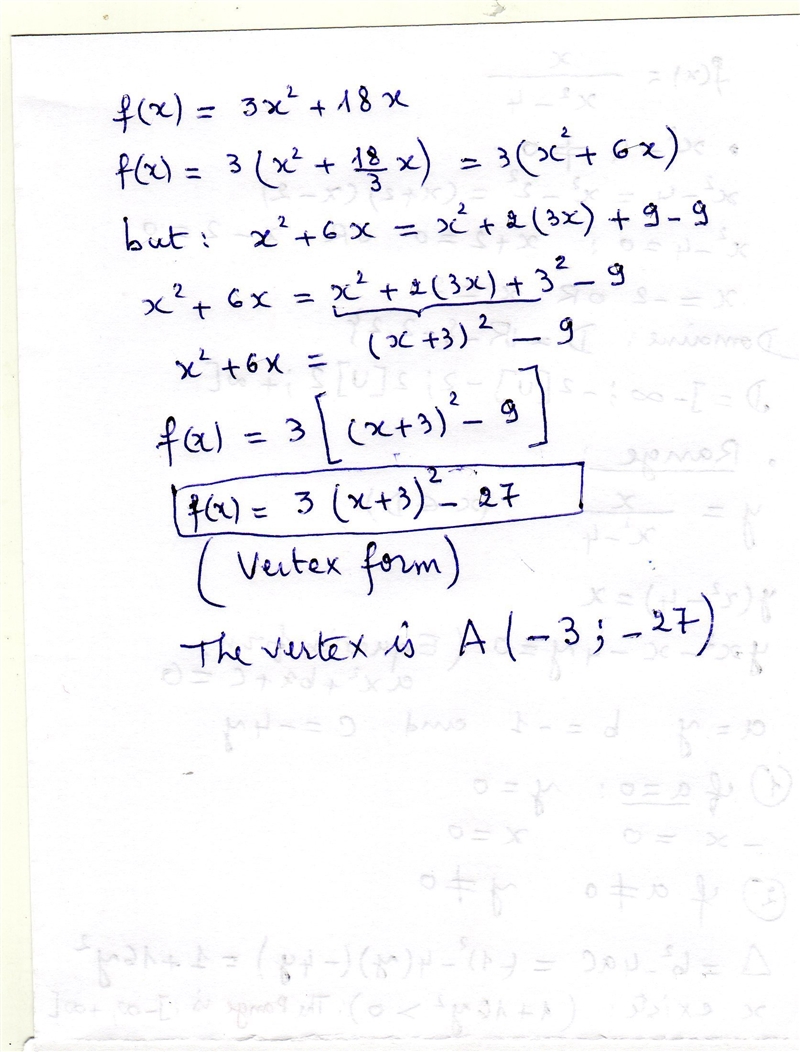 f(x) = 3x² + 18x
f(x) = 3(x² + 18/3 x) = 3(x² + 6x)
but: x² + 6x = x² + 2(3x) + 9 - 9
x² + 6x = x² + 2(3x) + 3² - 9
x² + 6x = (x+3)² - 9
f(x) = 3[(x+3)² - 9]
f(x) = 3(x+3)² - 27
(Vertex form)
The vertex is A(-3; -27)